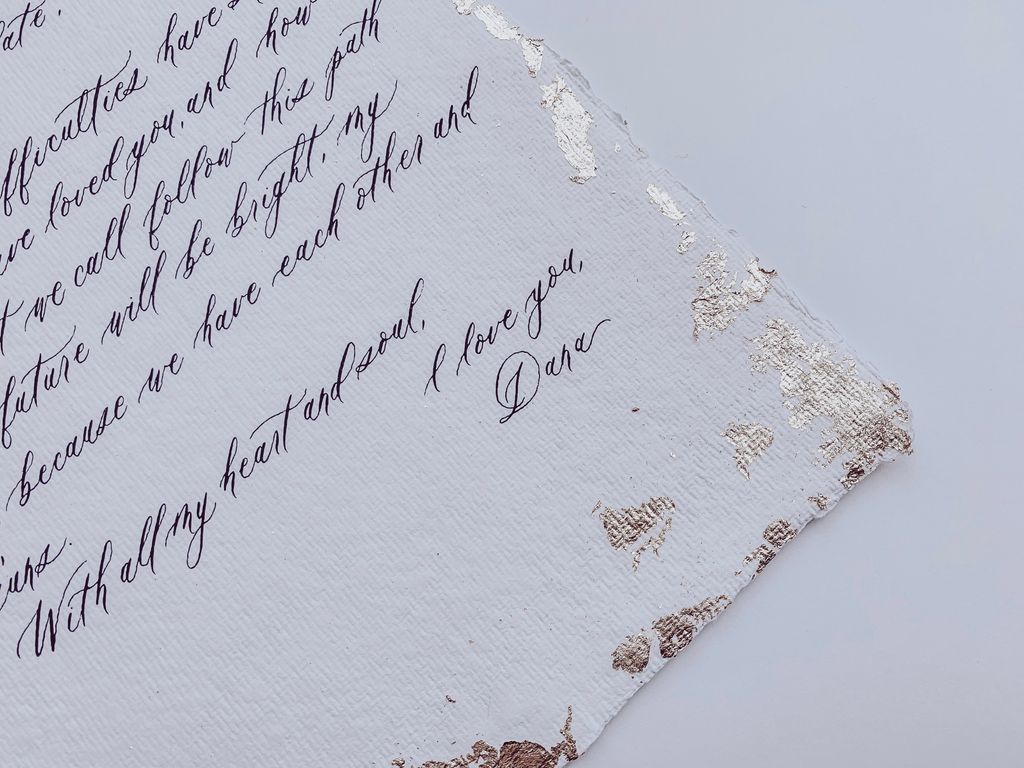 have
difficulties have
loved you, and how
we call follow this path
future will be bright, my
because we have each other and
With all my heart and soul,
I love you,
Dana